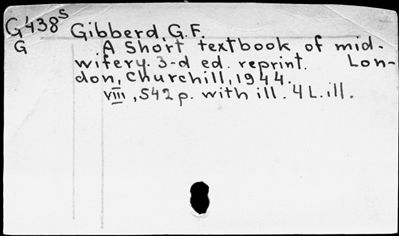 G438s Gibberd, G.F.
G A Short textbook of mid-
wifery. 3-d ed. reprint. Lon-
don, Churchill, 1944.
VIII, 542 p. with ill. 4 L. ill.